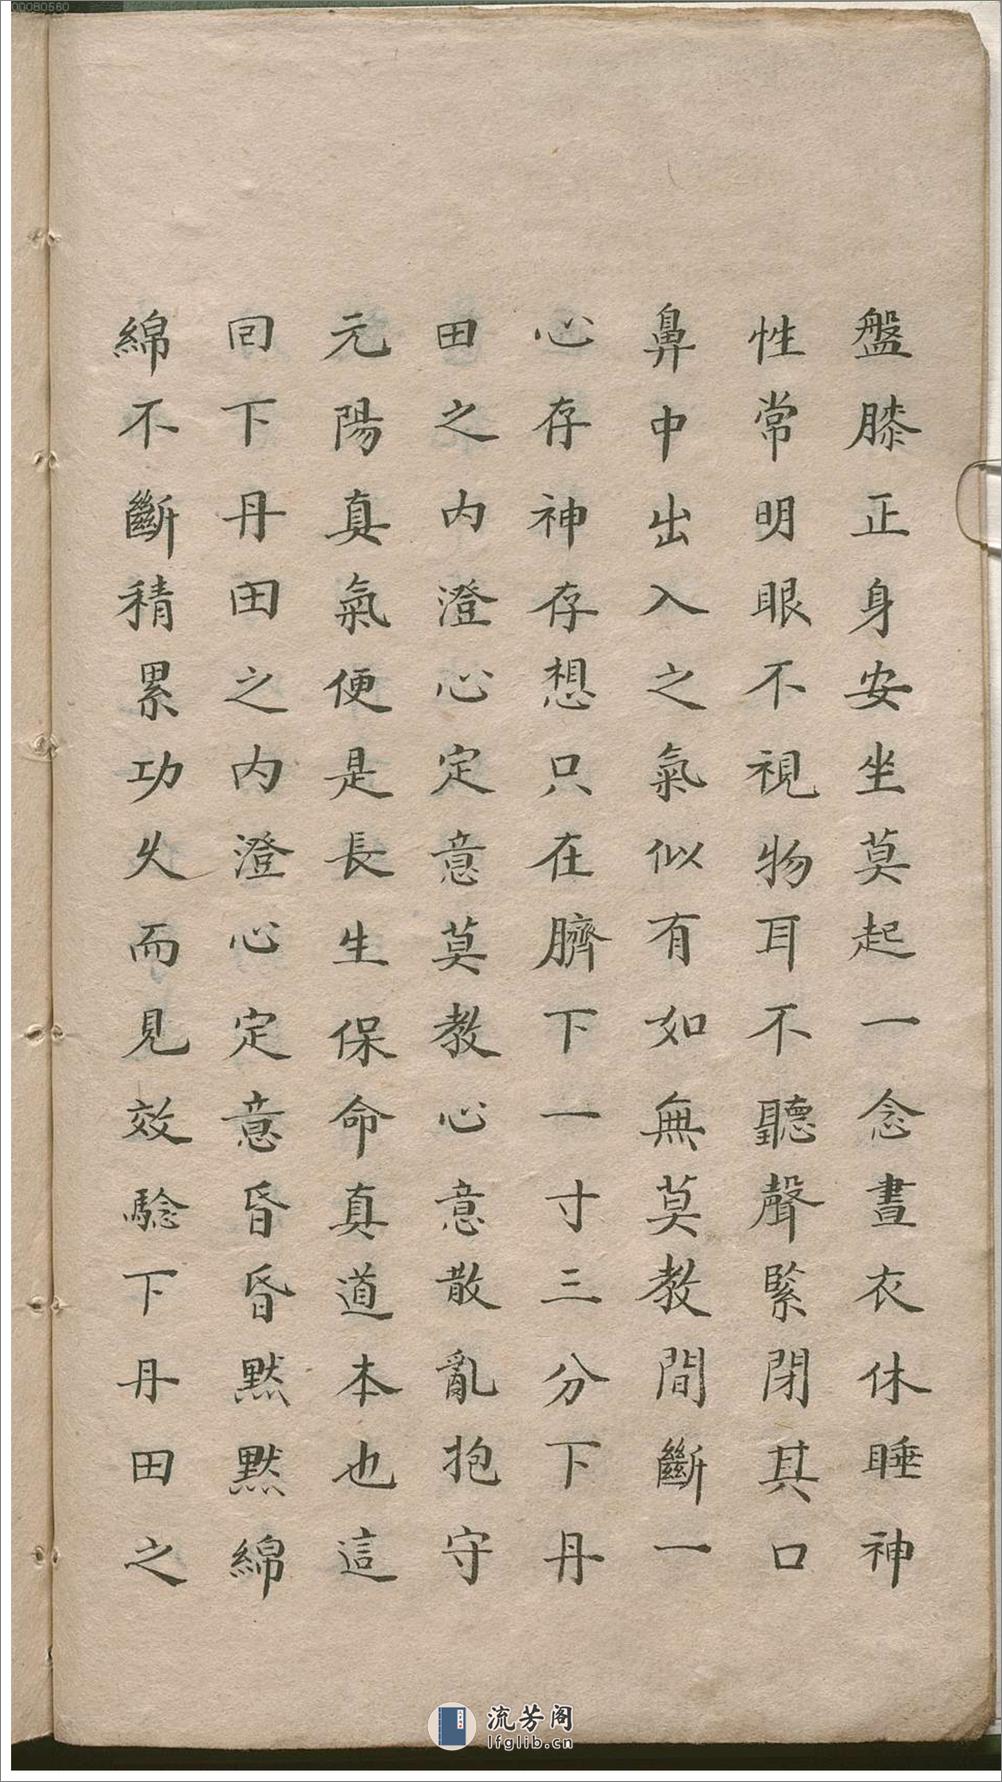 盤膝正身安坐莫起一念晝衣休睡神
性常明眼不視物耳不聽聲緊閉其口
鼻中出入之氣似有如無莫教間斷一
心存神存想只在臍下一寸三分下丹
田之內澄心定意莫教心意散亂抱守
元陽真氣便是長生保命真道本也這
囘下丹田之内澄心定意昏昏默默綿
綿不斷積累功久而見效驗下丹田之
00080560
流芳阁
lfglib.cn